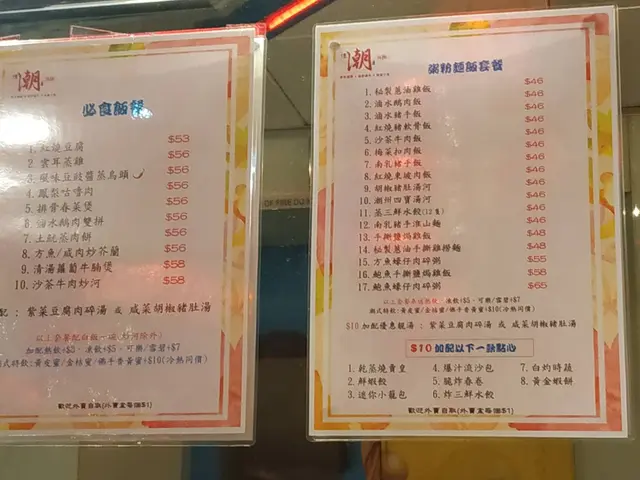 潮
必食飯餐
1. 紅燒豆腐 $53
2. 雲耳蒸雞 $56
3. 風味豆豉醬蒸烏頭 $56
4. 鳳梨咕嚕肉 $56
5. 排骨春菜煲 $56
6. 滷水鵝肉雙拼 $56
7. 土魷蒸肉餅 $56
8. 方魚/咸肉炒芥蘭 $56
9. 清湯蘿蔔牛腩煲 $58
10. 沙茶牛肉炒河 $58
配: 紫菜豆腐肉碎湯 或 咸菜胡椒豬肚湯
以上套餐配白飯一碗(炒河除外)
加配熱飲+$3﹑凍飲+$5﹑可樂/雪碧+$7
潮式特飲:黃皮蜜/金桔蜜/佛手香黃蜜+$10(冷熱同價)
歡迎外賣自取(外賣盒每個$1)
潮
粥粉麵飯套餐
1. 秘製蔥油雞飯 $46
2. 滷水鵝肉飯 $46
3. 滷水豬手飯 $46
4. 紅燒豬軟骨飯 $46
5. 沙茶牛肉飯 $46
6. 梅菜扣肉飯 $46
7. 南乳豬手飯 $46
8. 紅燒東坡肉飯 $46
9. 胡椒豬肚湯河 $46
10. 潮州四寶湯河 $46
11. 蒸三鮮水餃(12隻) $46
12. 南乳豬手淮山麵 $46
13. 手撕鹽焗雞飯 $48
14. 秘製蔥油手撕雞撈麵 $48
15. 方魚蠔仔肉碎粥 $55
16. 鮑魚手撕鹽焗雞飯 $58
17. 鮑魚蠔仔肉碎粥 $65
以上套餐奉送熱飲﹑凍飲+$5﹑可樂/雪碧+$7
潮式特飲:黃皮蜜/金桔蜜/佛手香黃蜜+$10(冷熱同價)
$10 加配優惠靚湯: 紫菜豆腐肉碎湯 或 咸菜胡椒豬肚湯
$10加配以下一款點心
1. 乾蒸燒賣皇 4. 爆汁流沙包 7. 白灼時蔬
2. 鮮蝦餃 5. 脆炸春卷 8. 黃金蝦餅
3. 迷你小籠包 6. 炸三鮮水餃
歡迎外賣自取(外賣盒每個$1)